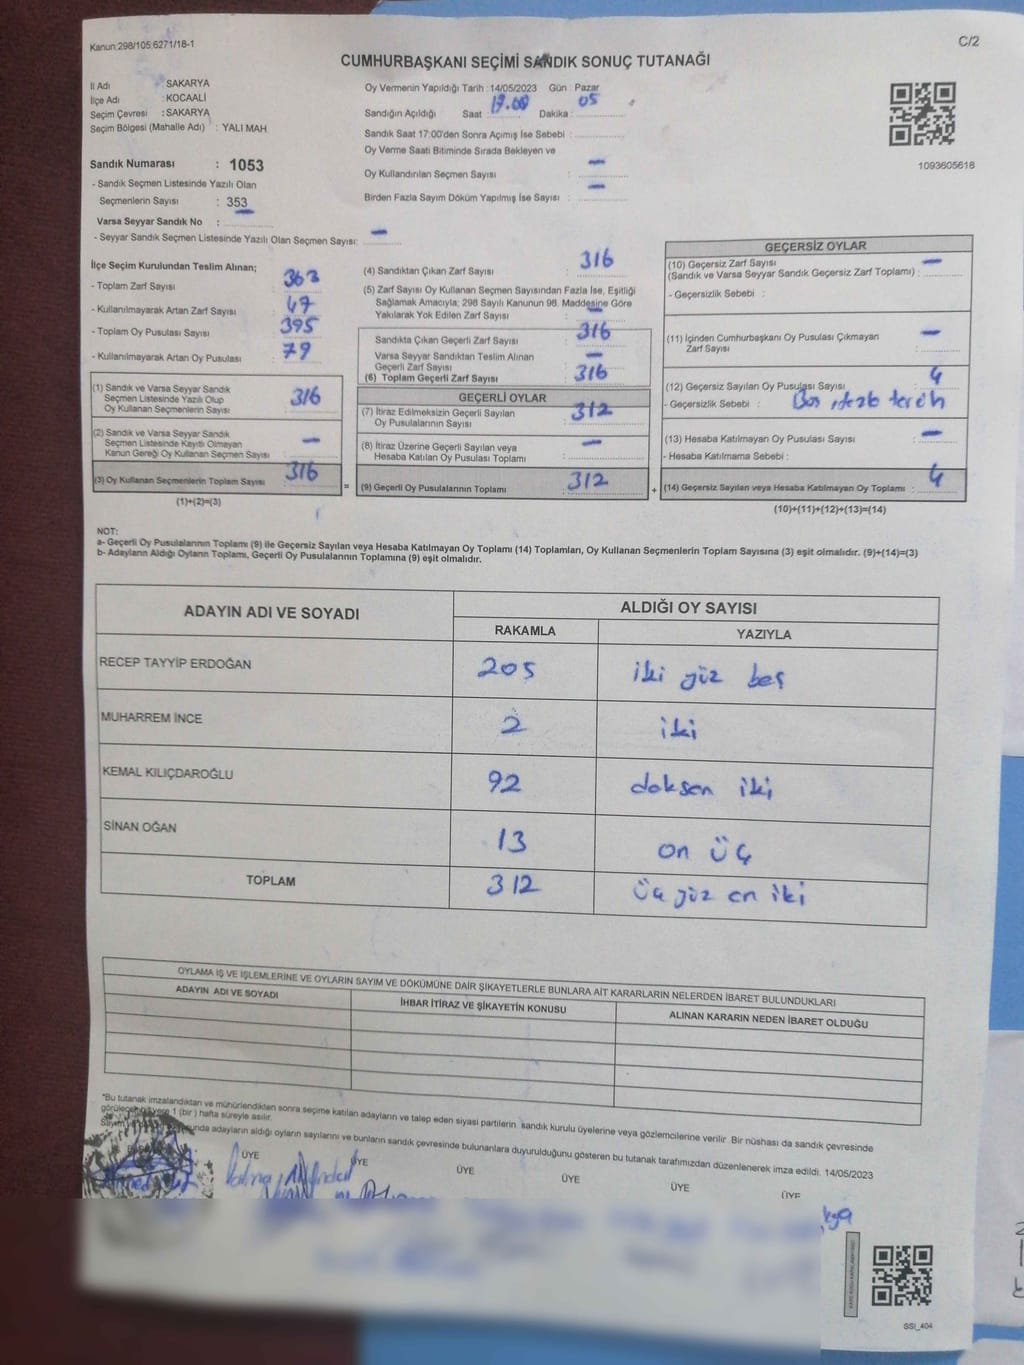 Kanun:298/105;6271/18-1
C/2
CUMHURBAŞKANI SEÇİMİ SANDIK SONUÇ TUTANAĞI
İl Adı : SAKARYA
İlçe Adı : KOCAALİ
Seçim Çevresi : SAKARYA
Seçim Bölgesi (Mahalle Adı) : YALI MAH.
Sandık Numarası : 1053
- Sandık Seçmen Listesinde Yazılı Olan
Seçmenlerin Sayısı : 353
Varsa Seyyar Sandık No :
- Seyyar Sandık Seçmen Listesinde Yazılı Olan Seçmen Sayısı: –
Oy Vermenin Yapıldığı Tarih : 14/05/2023 Gün : Pazar
Sandığın Açıldığı Saat : 17.00 Dakika : 05
Sandık Saat 17:00'den Sonra Açımış İse Sebebi :
Oy Verme Saati Bitiminde Sırada Bekleyen ve
Oy Kullandırılan Seçmen Sayısı : –
Birden Fazla Sayım Döküm Yapılmış İse Sayısı : –
1093605618
İlçe Seçim Kurulundan Teslim Alınan;
- Toplam Zarf Sayısı : 363
- Kullanılmayarak Artan Zarf Sayısı : 47
- Toplam Oy Pusulası Sayısı : 395
- Kullanılmayarak Artan Oy Pusulası : 79
(1) Sandık ve Varsa Seyyar Sandık
Seçmen Listesinde Yazılı Olup
Oy Kullanan Seçmenlerin Sayısı : 316
(2) Sandık ve Varsa Seyyar Sandık
Seçmen Listesinde Kayıtlı Olmayan
Kanun Gereği Oy Kullanan Seçmen Sayısı : –
(3) Oy Kullanan Seçmenlerin Toplam Sayısı : 316
(1)+(2)=(3)
(4) Sandıktan Çıkan Zarf Sayısı : 316
(5) Zarf Sayısı Oy Kullanan Seçmen Sayısından Fazla İse, Eşitliği
Sağlamak Amacıyla; 298 Sayılı Kanunun 98. Maddesine Göre
Yakılarak Yok Edilen Zarf Sayısı : –
Sandıkta Çıkan Geçerli Zarf Sayısı : 316
Varsa Seyyar Sandıktan Teslim Alınan
Geçerli Zarf Sayısı : –
(6) Toplam Geçerli Zarf Sayısı : 316
GEÇERLİ OYLAR
(7) İtiraz Edilmeksizin Geçerli Sayılan
Oy Pusulalarının Sayısı : 312
(8) İtiraz Üzerine Geçerli Sayılan veya
Hesaba Katılan Oy Pusulası Toplamı : –
= (9) Geçerli Oy Pusulalarının Toplamı : 312 +
GEÇERSİZ OYLAR
(10) Geçersiz Zarf Sayısı
(Sandık ve Varsa Seyyar Sandık Geçersiz Zarf Toplamı) : –
- Geçersizlik Sebebi :
(11) İçinden Cumhurbaşkanı Oy Pusulası Çıkmayan
Zarf Sayısı : –
(12) Geçersiz Sayılan Oy Pusulası Sayısı : 4
- Geçersizlik Sebebi : Boş
(13) Hesaba Katılmayan Oy Pusulası Sayısı : –
- Hesaba Katılmama Sebebi :
(14) Geçersiz Sayılan veya Hesaba Katılmayan Oy Toplamı : 4
(10)+(11)+(12)+(13)=(14)
NOT:
a- Geçerli Oy Pusulalarının Toplamı (9) ile Geçersiz Sayılan veya Hesaba Katılmayan Oy Toplamı (14) Toplamları, Oy Kullanan Seçmenlerin Toplam Sayısına (3) eşit olmalıdır. (9)+(14)=(3)
b- Adayların Aldığı Oyların Toplamı, Geçerli Oy Pusulalarının Toplamına (9) eşit olmalıdır.
ADAYIN ADI VE SOYADI ALDIĞI OY SAYISI
RAKAMLA YAZIYLA
RECEP TAYYİP ERDOĞAN 205 iki yüz beş
MUHARREM İNCE 2 iki
KEMAL KILIÇDAROĞLU 92 doksan iki
SİNAN OĞAN 13 on üç
TOPLAM 312 üç yüz on iki
OYLAMA İŞ VE İŞLEMLERİNE VE OYLARIN SAYIM VE DÖKÜMÜNE DAİR ŞİKAYETLERLE BUNLARA AİT KARARLARIN NELERDEN İBARET BULUNDUKLARI
ADAYIN ADI VE SOYADI İHBAR İTİRAZ VE ŞİKAYETİN KONUSU ALINAN KARARIN NEDEN İBARET OLDUĞU
*Bu tutanak imzalandıktan ve mühürlendikten sonra seçime katılan adayların ve talep eden siyasi partilerin sandık kurulu üyelerine veya gözlemcilerine verilir. Bir nüshası da sandık çevresinde
görülecek bir yere 1 (bir) hafta süreyle asılır.
adayların aldığı oyların sayılarını ve bunların sandık çevresinde bulunanlara duyurulduğunu gösteren bu tutanak tarafımızdan düzenlenerek imza edildi. 14/05/2023
ÜYE ÜYE ÜYE ÜYE ÜYE ÜYE
SSI_404